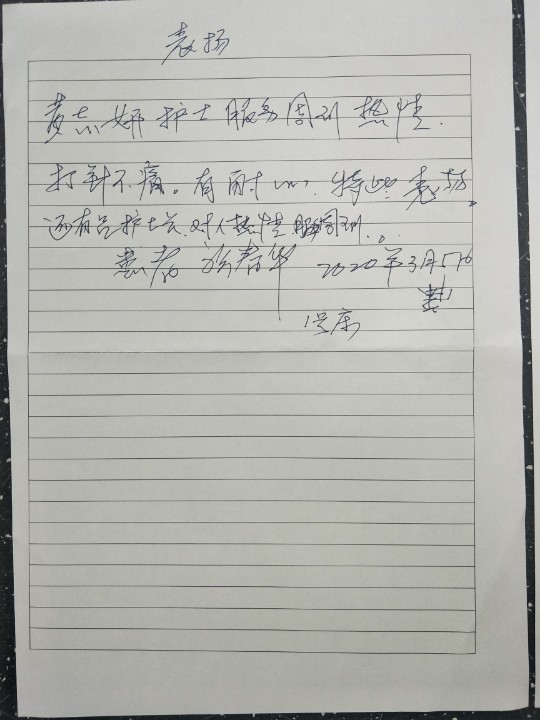 表扬
黄志妍护士服务周到热情.
打针不痛。有耐心.特此表扬。
还有吕护士长.对人热情服务周到.
患者 春华 2020年3月5日
1号床